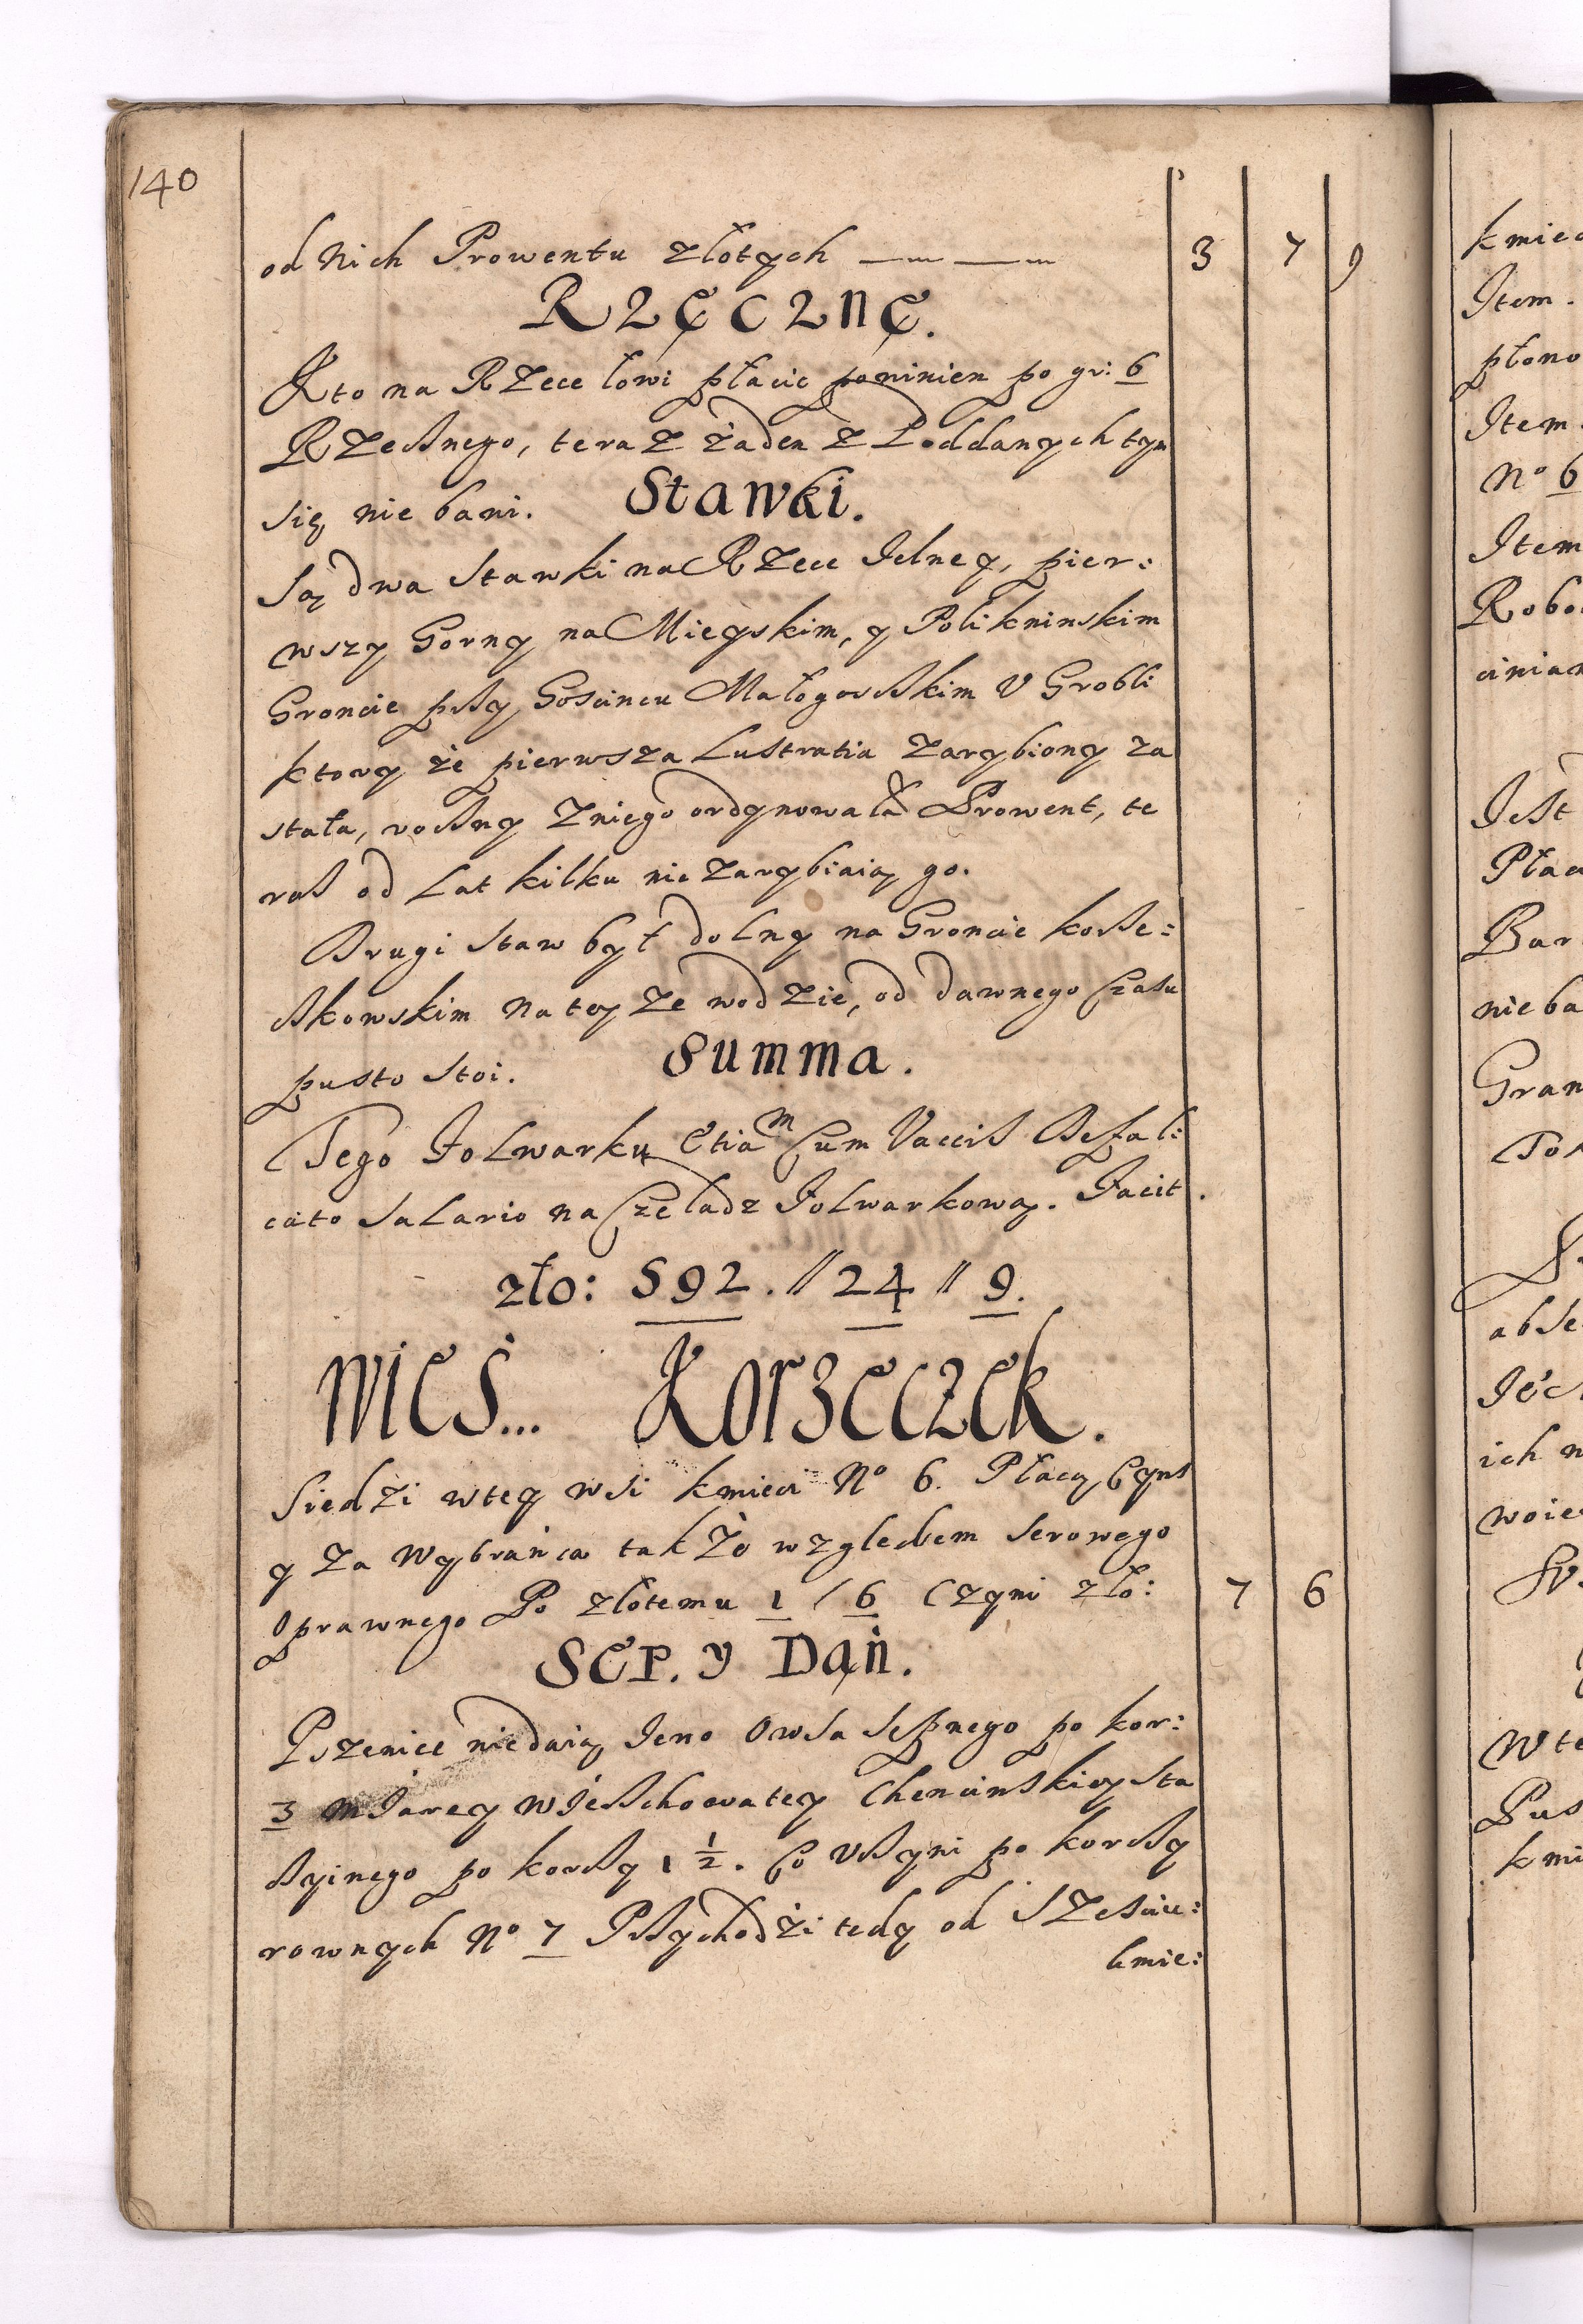 140
od nich Prowentu złotych — — 3 7 9
RZĘCZNĘ.
Kto na Rzece łowi płacic powinien po gr: 6
Rzecznego, teraz żaden z Poddanych tym
się nie bawi. Stawki.
Są dwa Stawki na Rzece Jelney, pier:
wszy Gorny na Mieyskim, y Polikninskim
Groncie przy Goscincu Małogoskim V Grobli
ktory że pierwsza Lustratia zarybiony za
stała, roczny z niego ordynowała Prowent, te
raz od Lat kilku nie zarybiaią go.
Drugi Staw był dolny na Groncie korze:
czkowskim na teyze wodzie, od dawnego Czasu
pusto stoi. Summa.
Tego Folwarku Etiam Cum Vaccis Defal:
cato Salario na Czeladz Folwarkową. Facit.
zło: 592. // 24 // 9.
WIEŚ... Korzeczek.
Siedzi w tey wsi kmieci No 6. Płacą Czynsz
y za Wybrańca także względem Serowego
Oprawnego Po złotemu 1 / 6 Czyni zło: 7 6
SEP. y Dań.
Pszenice nie daią Jeno Owsa Sepnego po kor:
3 miarey wierzchowatey Chencinskiey sta
czyinego po korcy 1 1/2. Co Vczyni po korcy
rownych No 7 Przychodźi tedy od Szescie:
kmie:
kmiec
Item.
płono
Item.
No 6
Item
Robo
ciniar
Jest
Płac
Bar
nie ba
Gran
abse
ich n
woie
W te
Pus
kmi